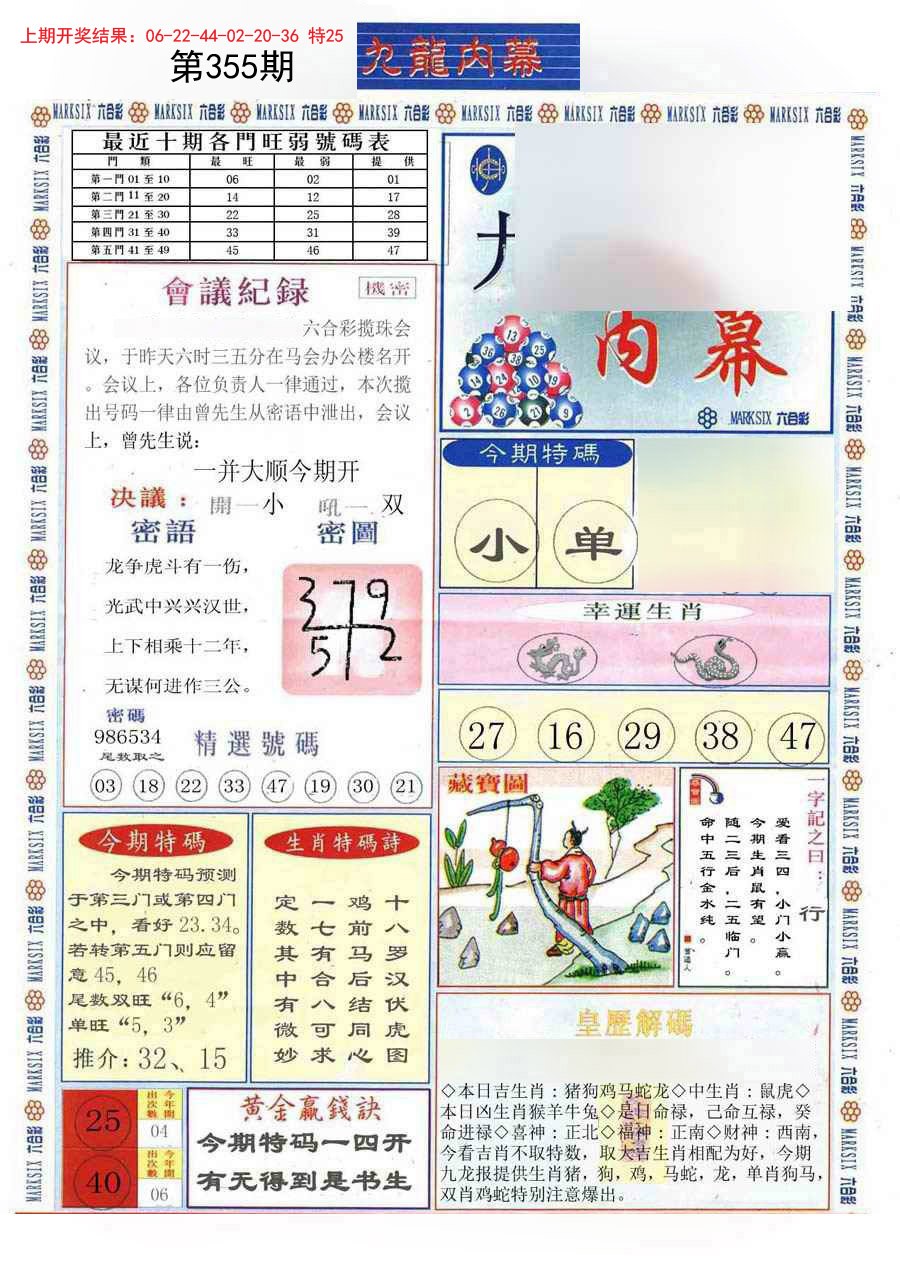 上期开奖结果：06-22-44-02-20-36 特25
第355期
九龍内幕
MARKSIX 六合彩 MARKSIX 六合彩 MARKSIX 六合彩 MARKSIX 六合彩 MARKSIX 六合彩 MARKSIX 六合彩 MARKSIX 六合彩 MARKSIX 六合彩
最近十期各門旺弱號碼表
門 類 最 旺 最 弱 提 供
第一門 01 至 10 06 02 01
第二門 11 至 20 14 12 17
第三門 21 至 30 22 25 28
第四門 31 至 40 33 31 39
第五門 41 至 49 45 46 47
會議紀録
機密
六合彩揽珠会
议，于昨天六时三五分在马会办公楼名开
。会议上，各位负责人一律通过，本次揽
出号码一律由曾先生从密语中泄出，会议
上，曾先生说：
一并大顺今期开
决議：開一小 吼一双
密語
密圖
龙争虎斗有一伤，
光武中兴兴汉世，
上下相乘十二年，
无谋何进作三公。
379
512
密碼
986534
尾数取之
精選號碼
03 18 22 33 47 19 30 21
内幕
13
36 38 25
14 24 10 19
2 26 21 9
MARKSIX 六合彩
今期特碼
小 单
幸運生肖
27 16 29 38 47
藏寶圖
一字記之曰：行
爱看三四，小门小赢。
今期生肖鼠有望。
随二三后，二五临门。
命中五行金水纯。
今期特碼
今期特码预测
于第三门或第四门
之中，看好 23.34。
若转第五门则应留
意 45，46
尾数双旺“6，4”
单旺“5，3”
推介：32、15
生肖特碼詩
十八罗汉伏虎图
鸡前马后结同心
一七有合八可求
定数其中有微妙
25
今年開出次數
04
40
今年開出次數
06
黃金贏錢訣
今期特码一四开
有无得到是书生
皇歷解碼
◇本日吉生肖：猪狗鸡马蛇龙◇中生肖：鼠虎◇
本日凶生肖猴羊牛兔◇是日命禄，己命互禄，癸
命进禄◇喜神：正北◇福神：正南◇财神：西南，
今看吉肖不取特数，取大吉生肖相配为好，今期
九龙报提供生肖猪，狗，鸡，马蛇，龙，单肖狗马，
双肖鸡蛇特别注意爆出。